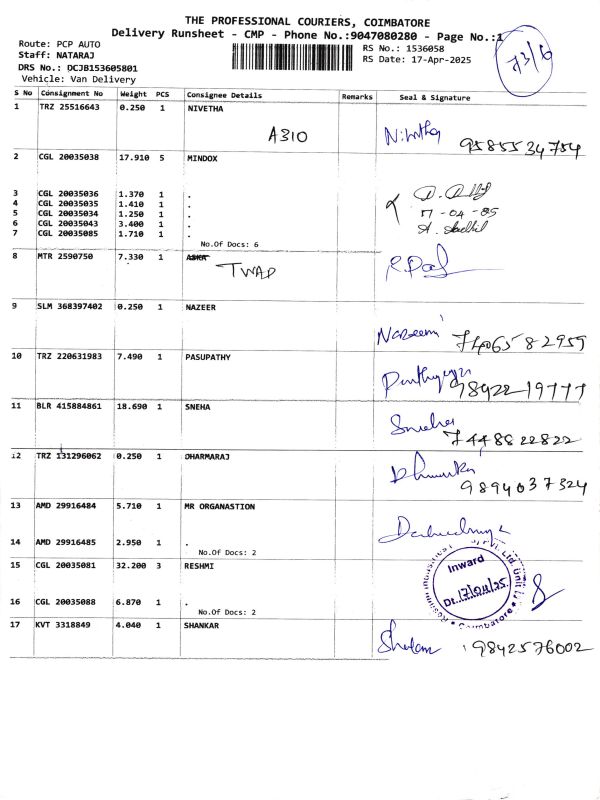 THE PROFESSIONAL COURIERS, COIMBATORE
Delivery Runsheet - CMP - Phone No.:9047080280 - Page No.:1
Route: PCP AUTO
Staff: NATARAJ
DRS No.: DCJB153605801
Vehicle: Van Delivery
RS No.: 1536058
RS Date: 17-Apr-2025
73/6
S No Consignment No Weight PCS Consignee Details Remarks Seal & Signature
1 TRZ 25516643 0.250 1 NIVETHA
A310
Nivetha 9585534754
2 CGL 20035038 17.910 5 MINDOX
3 CGL 20035036 1.370 1 .
4 CGL 20035035 1.410 1 .
5 CGL 20035034 1.250 1 .
6 CGL 20035043 3.400 1 .
7 CGL 20035085 1.710 1 .
No.Of Docs: 6
8 MTR 2590750 7.330 1
TWAD
9 SLM 368397402 0.250 1 NAZEER
Nazeem 7406582959
10 TRZ 220631983 7.490 1 PASUPATHY
9842219777
11 BLR 415884861 18.690 1 SNEHA
Sneha
7448822822
12 TRZ 131296062 0.250 1 DHARMARAJ
9894037324
13 AMD 29916484 5.710 1 MR ORGANASTION
14 AMD 29916485 2.950 1 .
No.Of Docs: 2
15 CGL 20035081 32.200 3 RESHMI
Inward
Dt. 17/04/25
Coimbatore
16 CGL 20035088 6.870 1 .
No.Of Docs: 2
17 KVT 3318849 4.040 1 SHANKAR
9842576002